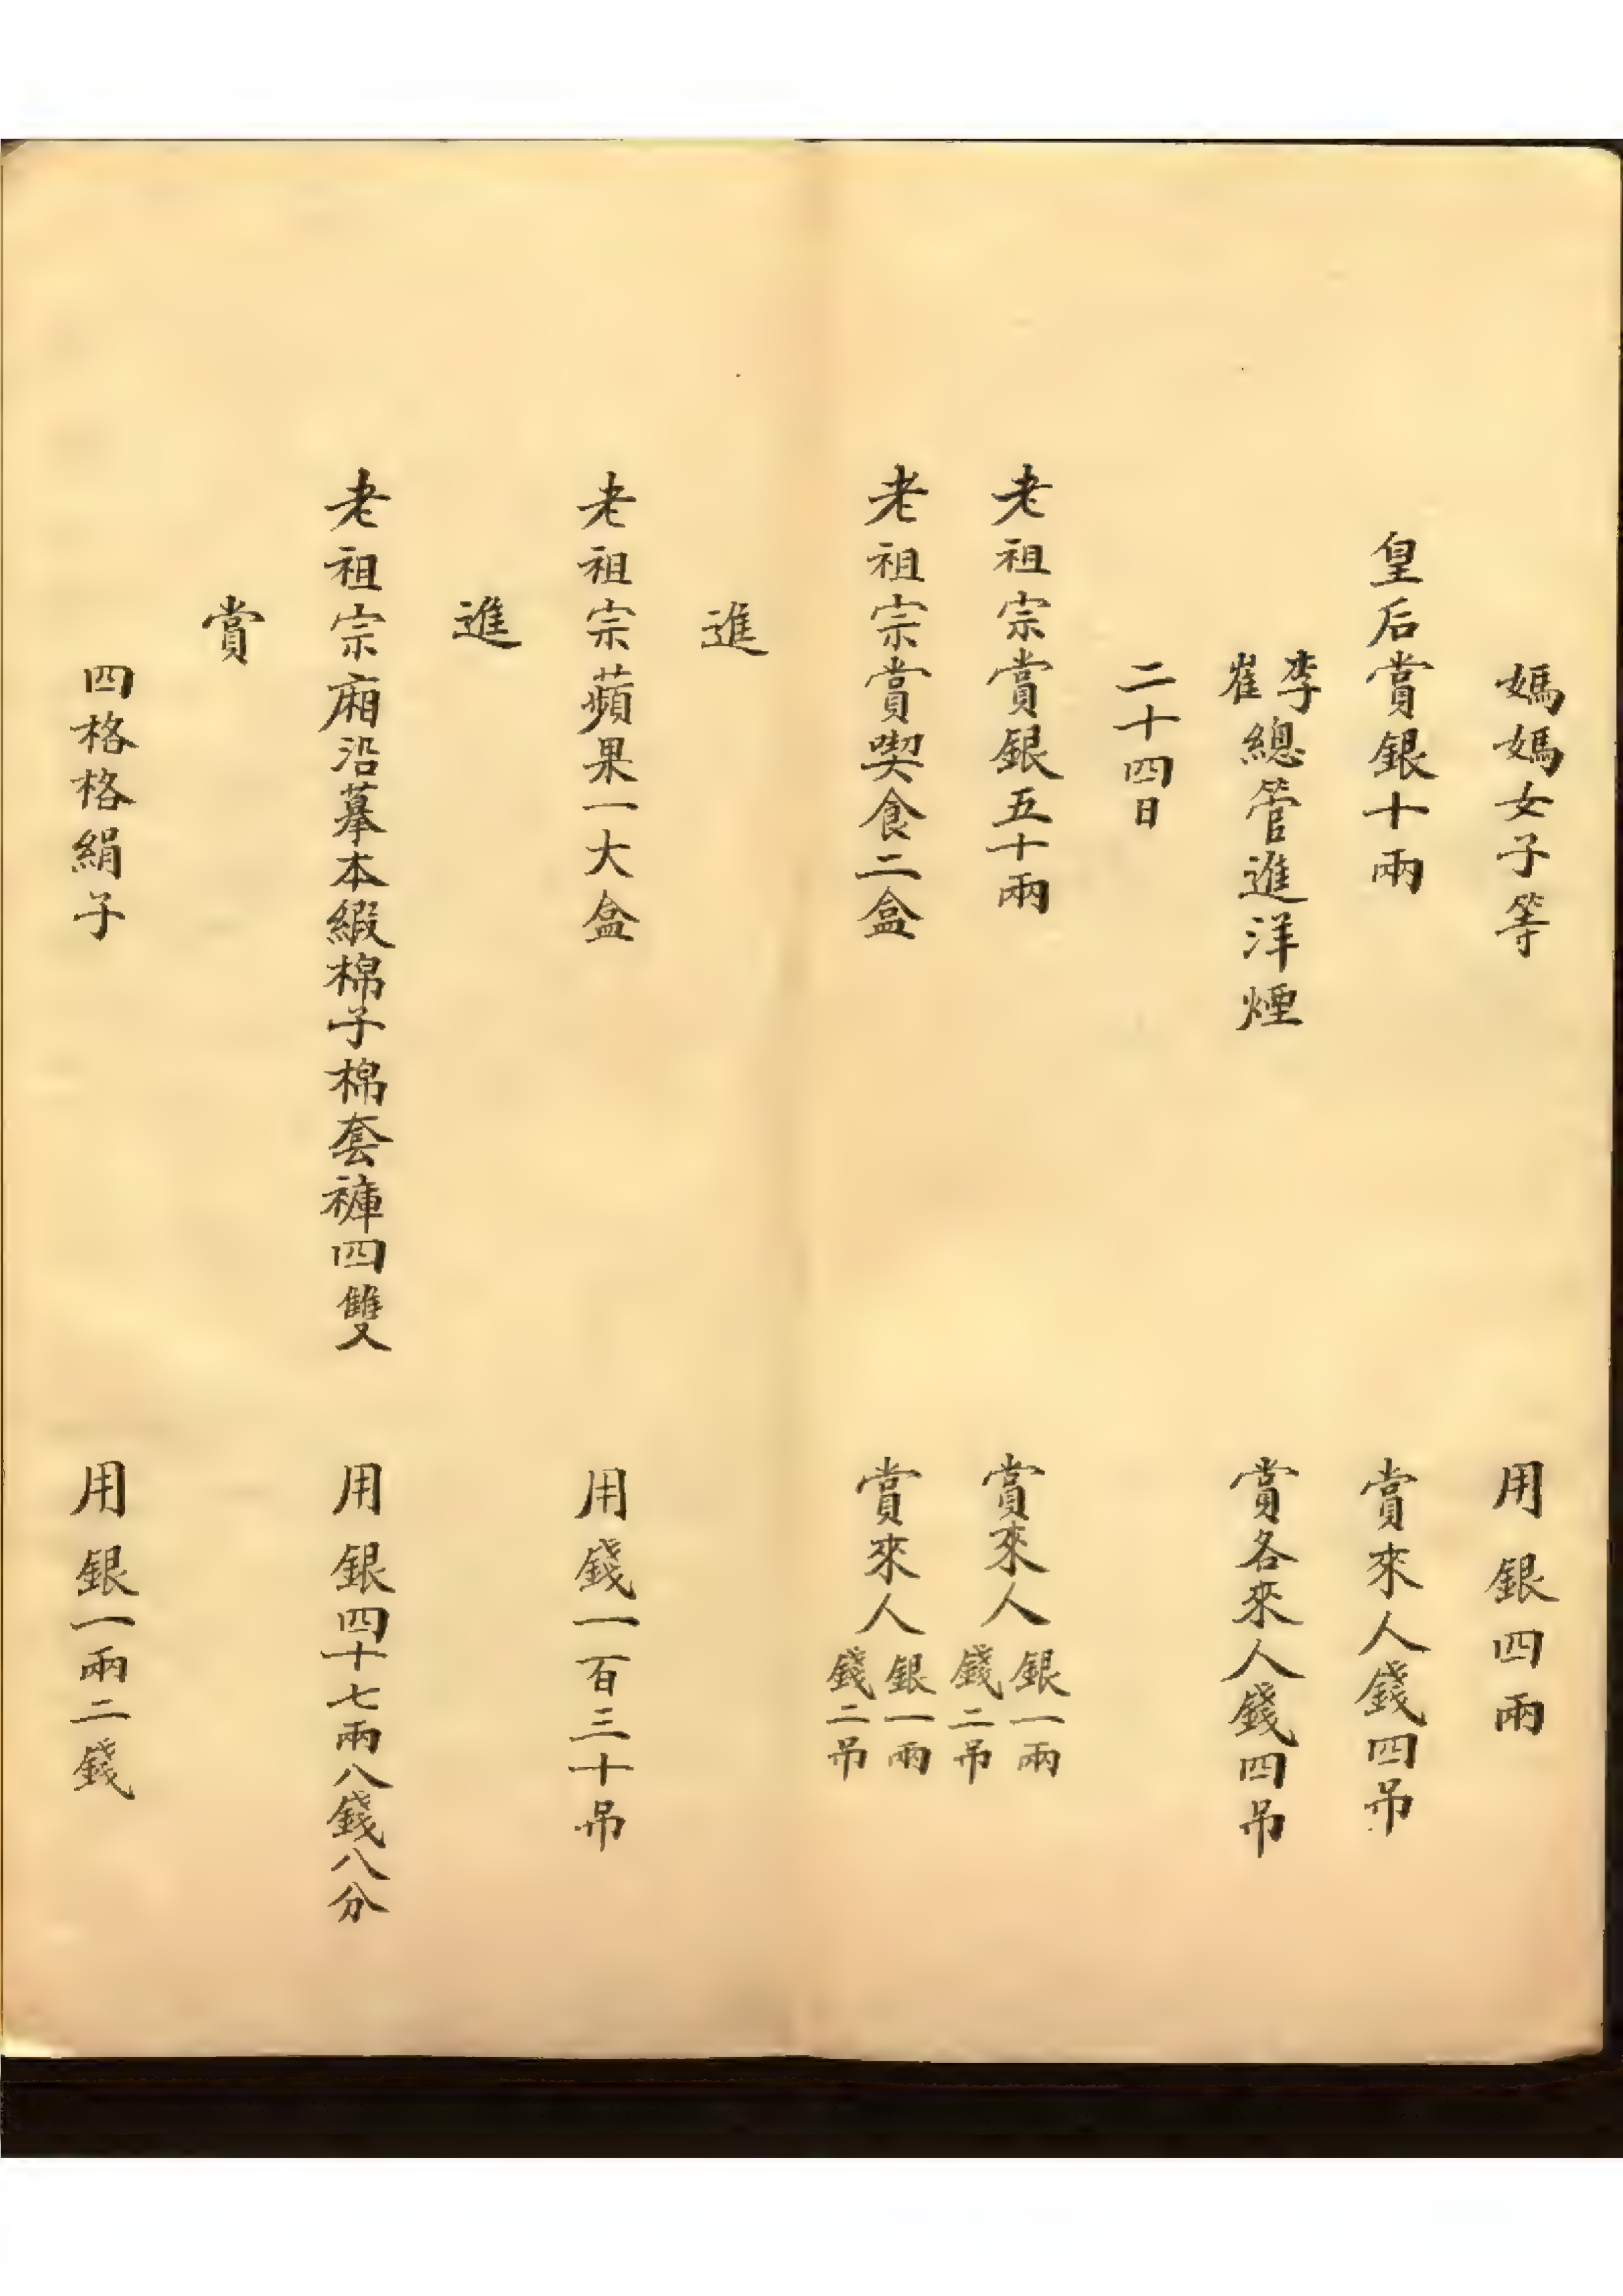 媽媽女子等 用銀四兩
皇后賞銀十兩 賞來人錢四吊
李崔總管進洋煙 賞各來人錢四吊
二十四日
老祖宗賞銀五十兩 賞來人銀一兩錢二吊
老祖宗賞喫食二盒 賞來人銀一兩錢二吊
進
老祖宗蘋果一大盒 用錢一百三十吊
進
老祖宗廂沿摹本緞棉子棉套褲四雙 用銀四十七兩八錢八分
賞
四格格絹子 用銀一兩二錢